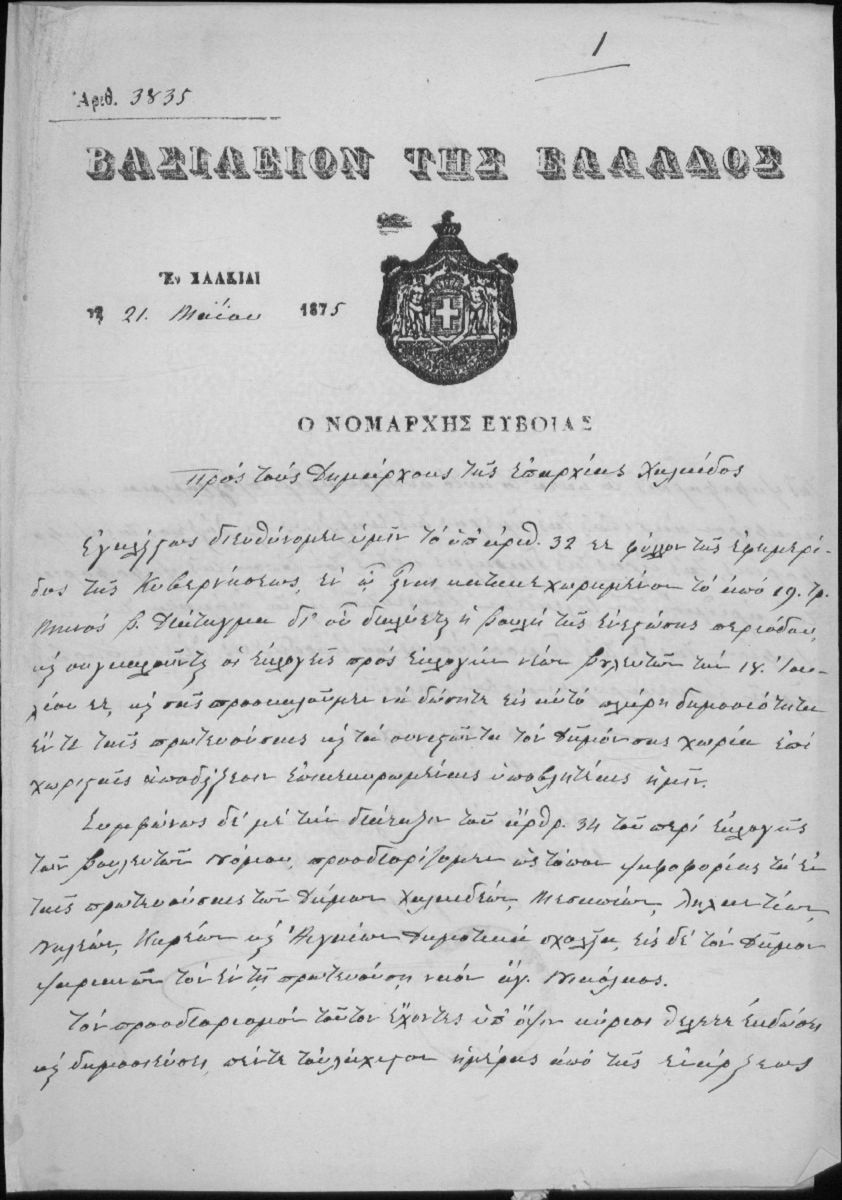 1
Ἀριθ. 3835
ΒΑΣΙΛΕΙΟΝ ΤΗΣ ΕΛΛΑΔΟΣ
Ἐν ΧΑΛΚΙΔΙ
τῇ 21. Μαΐου 1875
Ο ΝΟΜΑΡΧΗΣ ΕΥΒΟΙΑΣ
Πρός τούς Δημάρχους τῆς Ἐπαρχίας Χαλκίδος
Ἐγκλείστως διευθύνομεν ὑμῖν τό ὑπ' ἀριθ. 32 ε.ε. φύλλον τῆς ἐφημερί-
δος τῆς Κυβερνήσεως, ἐν ᾧ εἶναι κατακεχωρημένον τό ἀπό 19. τρ.
Μηνός Β. Διάταγμα δι' οὗ διαλύεται ἡ Βουλή τῆς ἐνεστώσης περιόδου,
καί συγκαλοῦνται οἱ ἐκλογεῖς πρός ἐκλογήν νέων Βουλευτῶν τήν 18. Ἰου-
λίου ε.ε., καί σᾶς προσκαλοῦμεν νά δώσητε εἰς αὐτό πλήρη δημοσιότητα
ἔν τε ταῖς πρωτευούσαις καί τά συνιστῶντα τόν Δῆμόν σας χωρία ἐπί
χωρισταῖς ἀποδείξεσιν ἐπικεκυρωμέναις ὑποβλητέαις ἡμῖν.
Συμφώνως δέ μέ τήν διάταξιν τοῦ ἄρθρ. 34 τοῦ περί ἐκλογῆς
τῶν Βουλευτῶν Νόμου, προσδιορίζομεν ὡς τόπον ψηφοφορίας τά ἐν
ταῖς πρωτευούσαις τῶν Δήμων Χαλκιδέων, Μεσσαπίων, Ληλαντίων,
Νηλέων, Κηρέων καί Αἰγαίων Δημοτικά σχολεῖα, εἰς δέ τόν Δῆμον
τόν ἐν τῇ πρωτευούσῃ ναόν ἁγ. Νικόλαος.
Τόν προσδιορισμόν τοῦτον ἔχοντες ὑπ' ὄψιν κύριοι θέλετε ἐκδώσει
καί δημοσιεύσει, πέντε τοὐλάχιστον ἡμέρας ἀπό τῆς ἐνάρξεως